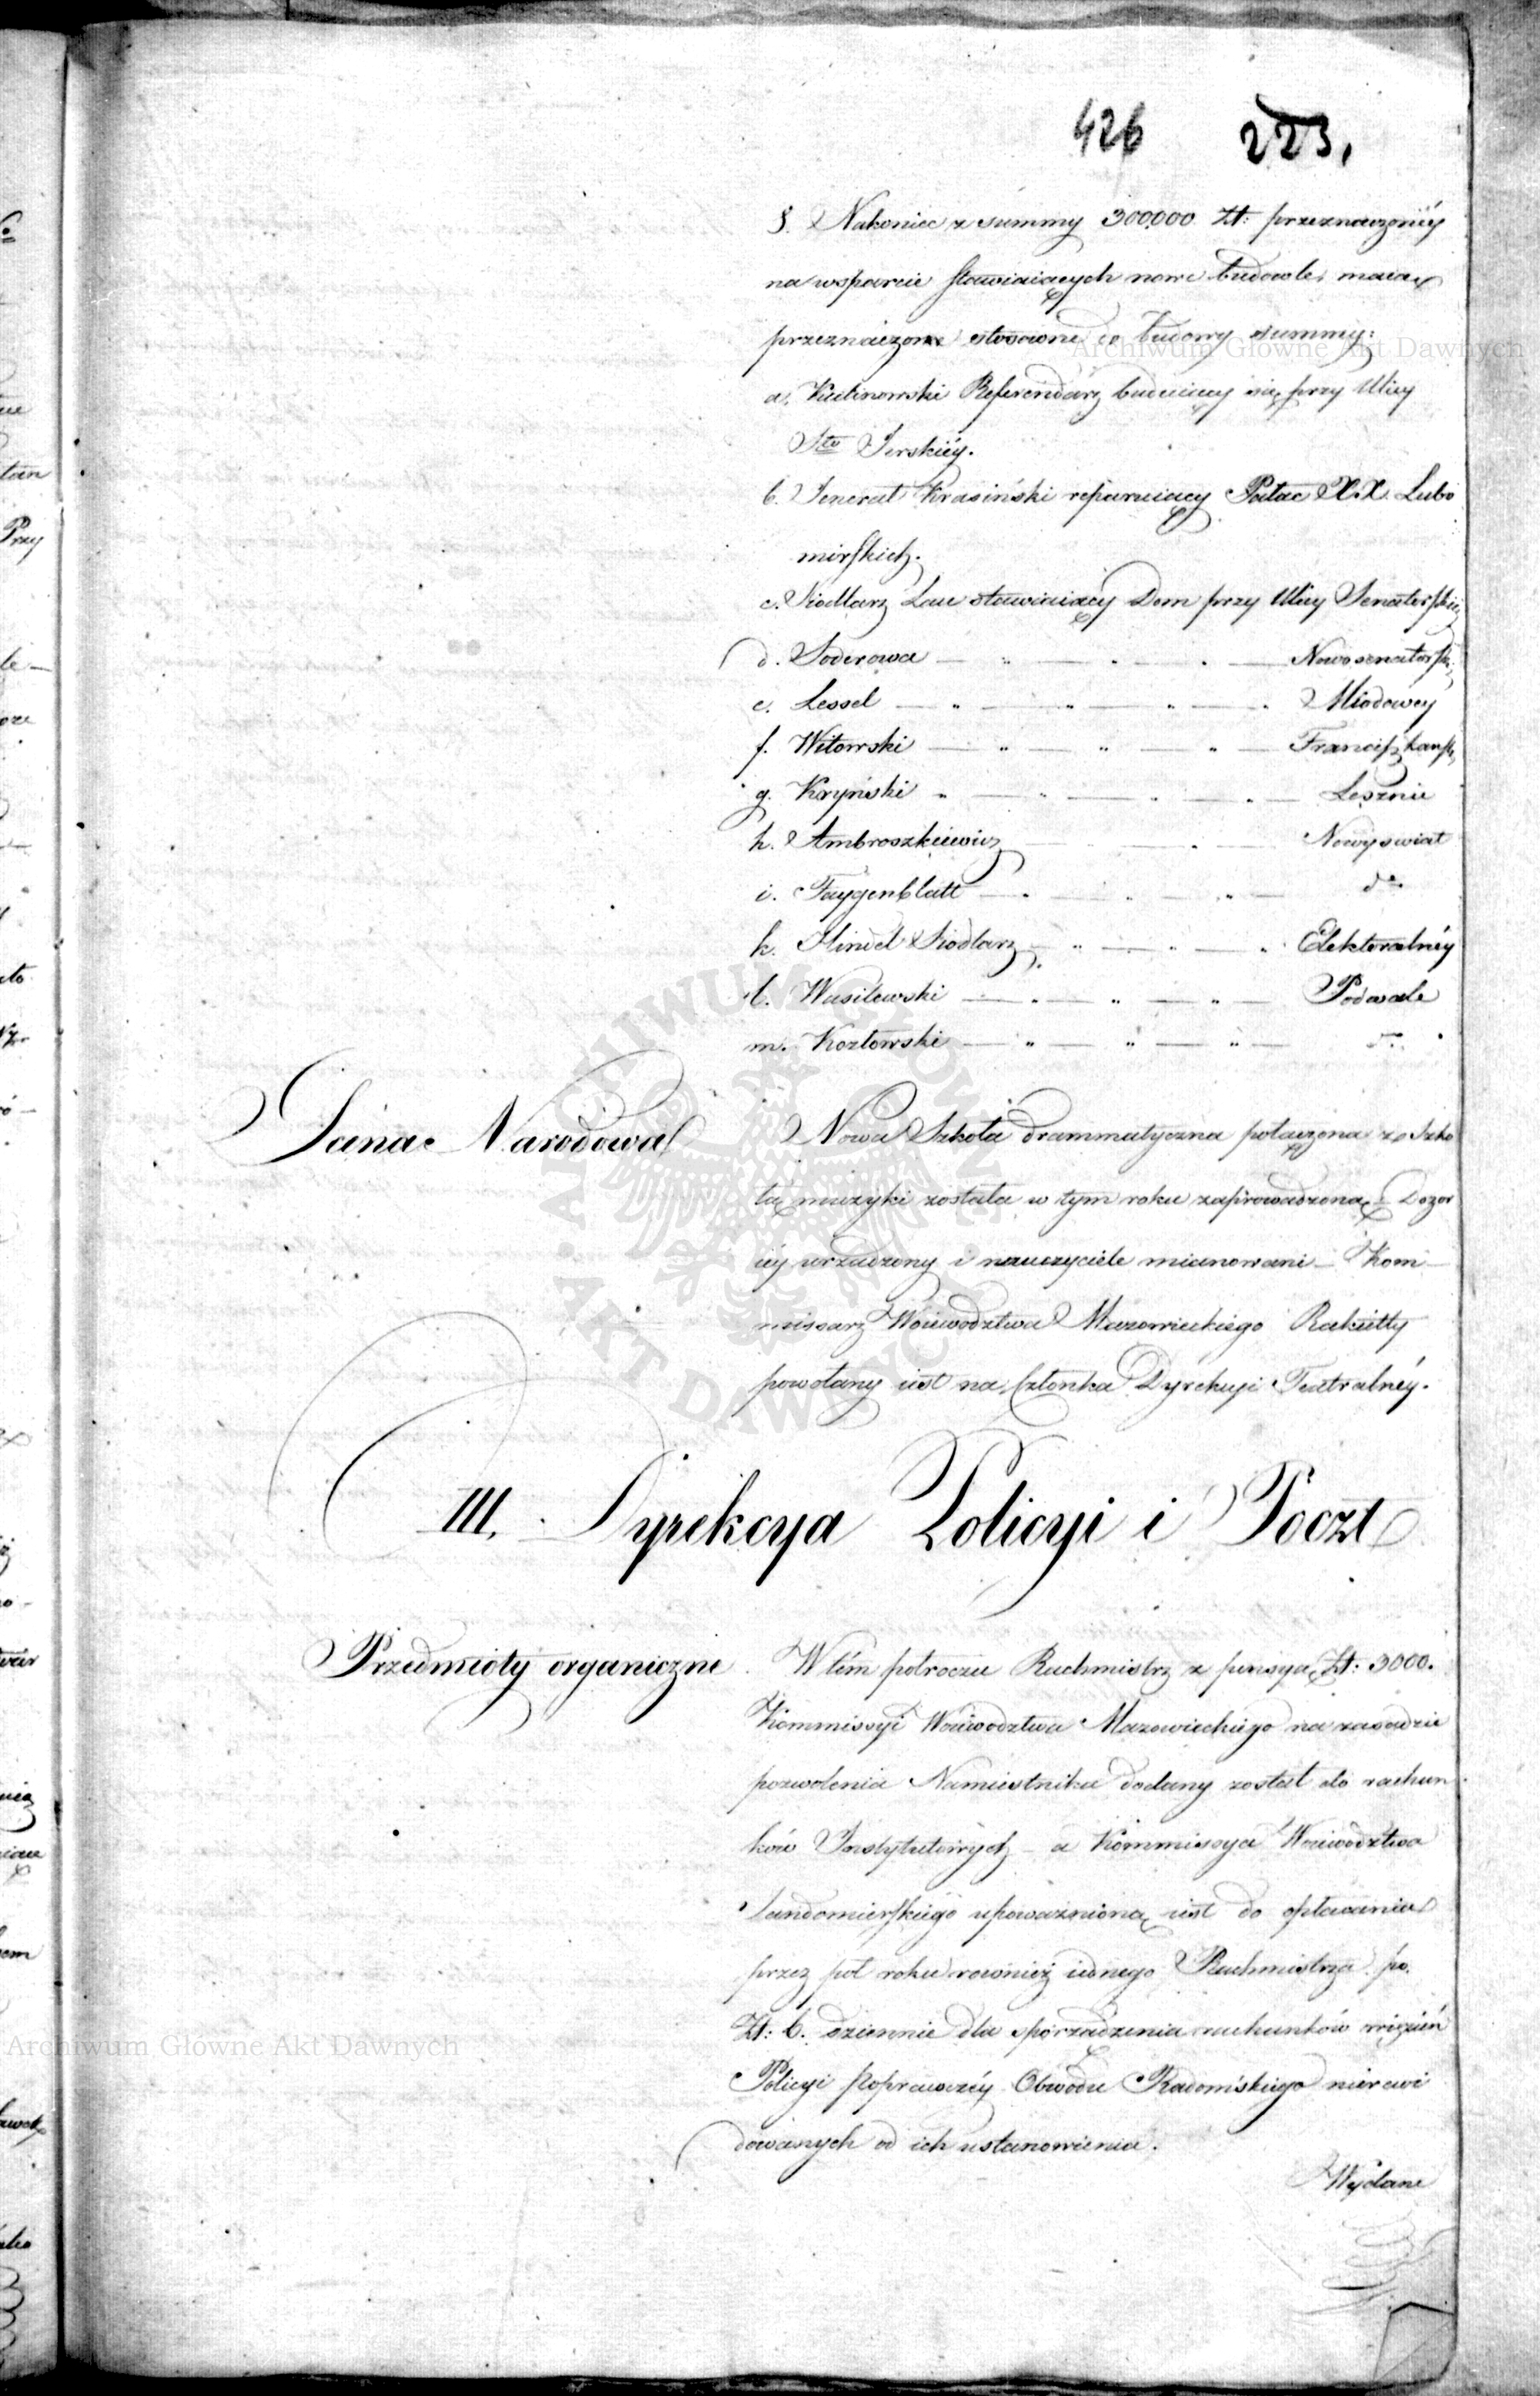 426 223,
§. Nakoniec z summy 300,000 Zł: przeznaczonéy
na wsparcie stawiaiących nowe budowle, maią
przeznaczone stosowne do budowy summy:
a. Referendarz buduiący się przy Ulicy
Sto Jerskiéy.
b. Jenerał Krasiński reparuiący Pałac X.X. Lubo
mirskich.
c. Siodlarz Lau stawiaiący Dom przy Ulicy Senatorskiéy
d. Soderowa — " — " — " — Nowosenatorsk:
e. Lessel — " — " — " — " Miodowey
f. Witowski — " — " — " — Franciszkańsk:
g. Kryński " — " — " — " — Lesznie
h. Ambroszkiewicz — " — Nowyswiat
i. Faygenblatt — " — " — " — do
k. Hindel Siodlarz — " — " — " Elektoralnéy
l. Wasilewski — " — " — " — Podwale
m. Kozłowski — " — " — " —
Scena Narodowa
Nowa Szkoła drammatyczna połączona ze Szko
łą muzyki została w tym roku zaprowadzoną – Dozor
iéy urządzony i nauczyciele mianowani – Kom
missarz Woiewodztwa Mazowieckiego Rakietty
powołany iest na Członka Dyrekcyi Teatralnéy.
III. Dyrekcya Policyi i Poczt
Przedmioty organiczne
W tém połroczu Rachmistrz z pensyą Zł: 3000.
Kommissyi Woiewodztwa Mazowieckiego na zasadzie
pozwolenia Namiestnika dodany został do rachun
ków Instytutowych – a Kommissya Woiewodztwa
Sandomierskiego upoważnioną iest do opłacania
przez poł roku rownież iednego Rachmistrza po
Zł: 6. dziennie dla sporządzenia rachunków więzień
Policyi Poprawczéy Obwodu Radomskiego nierewi
dowanych od ich ustanowienia.
Wydane
Archiwum Główne Akt Dawnych
Archiwum Główne Akt Dawnych
ARCHIWUM GŁÓWNE AKT DAWNYCH